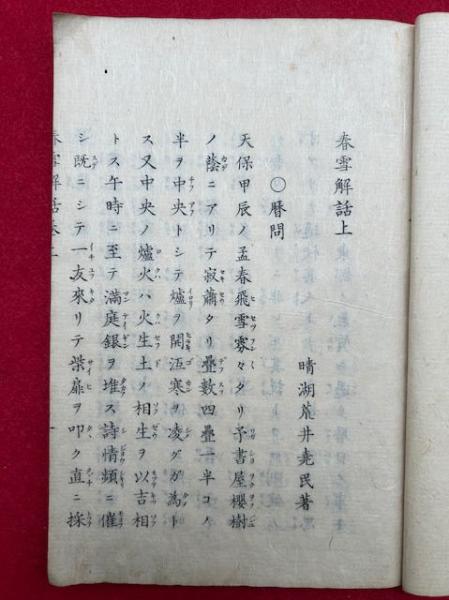 春雪解話上
晴湖荒井堯民著
〇暦問
天保甲辰ノ孟春飛雪雰々タリ予書屋櫻樹
ノ蔭ニアリテ寂蕭タリ疊數四疊一半コノ
半ヲ中央トシテ爐ヲ開沍寒ヲ凌グガ為ト
ス又中央ノ爐火ハ火生土ノ相生ヲ以吉相
トス午時ニ至テ滿庭銀ヲ堆ス詩情頻ニ催
シ既ニシテ一友來リテ柴扉ヲ叩ク直ニ採
春雪解話卷上